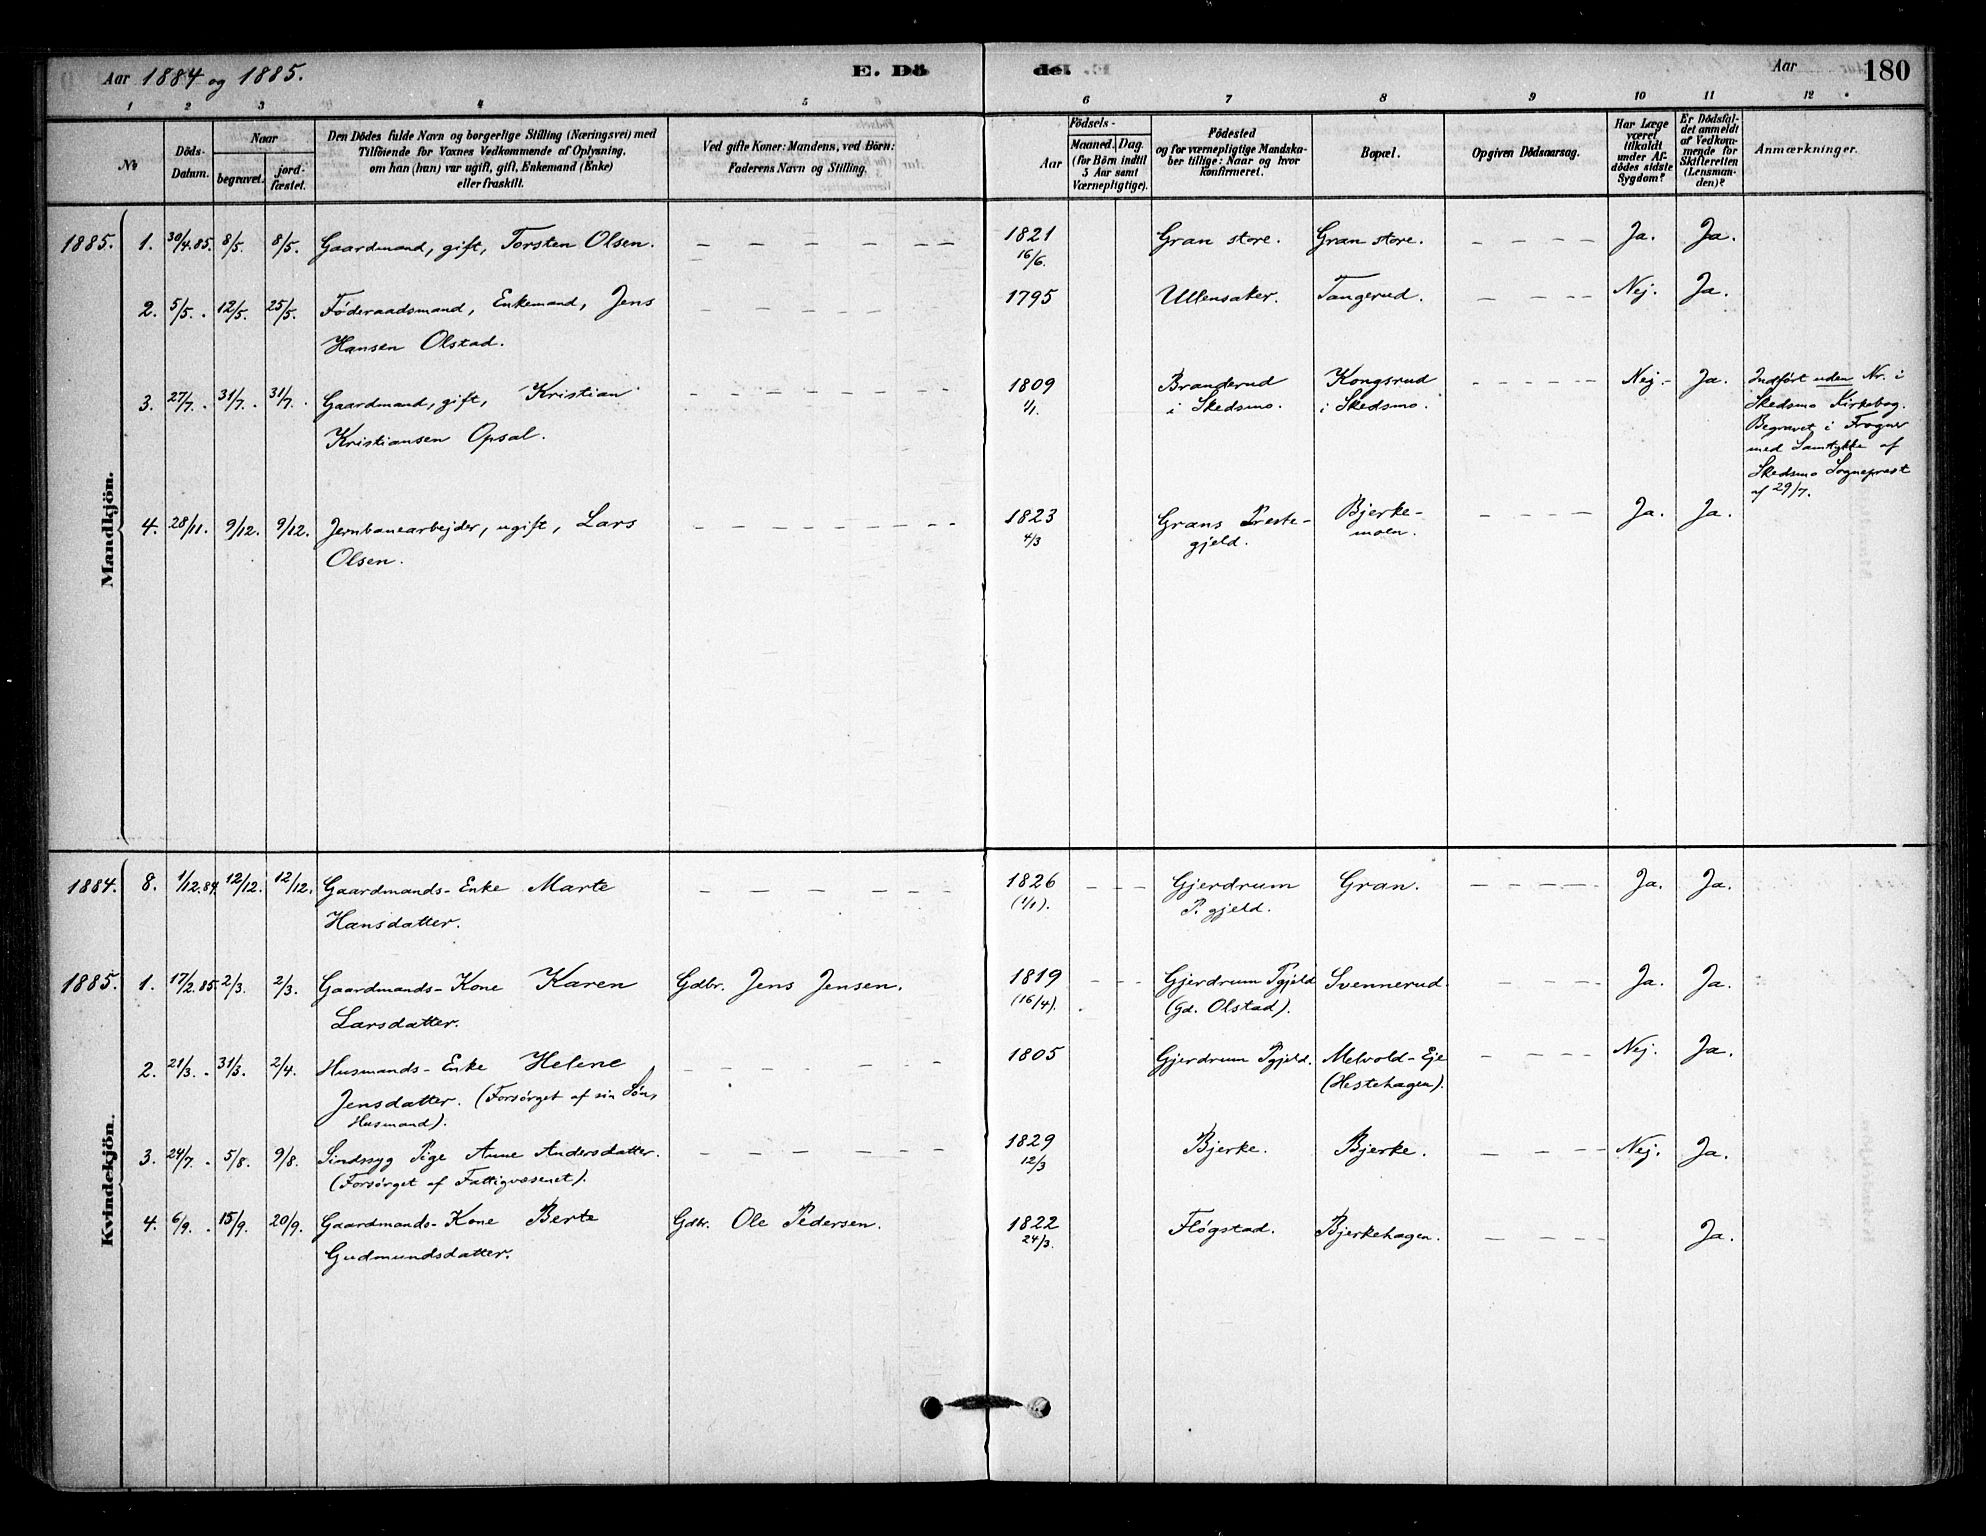 Aar 1884 og 1885. E. Dö de. Aar 180
1 2 3 4 5 6 7 8 9 10 11 12
No
Döds-
Datum.
Naar
begravet.
jord-
fæstet.
Den Dödes fulde Navn og borgerlige Stilling (Næringsvei) med
Tilföiende for Voxnes Vedkommende af Oplysning,
om han (hun) var ugift, gift, Enkemand (Enke)
eller fraskilt.
Ved gifte Koner: Mandens, ved Börn:
Faderens Navn og Stilling.
Födsels-
Aar
Maaned. Dag.
(for Börn indtil
5 Aar samt
Værnepligtige).
Födested
og for værnepligtige Mandska-
ber tillige: Naar og hvor
konfirmeret.
Bopæl.
Opgiven Dödsaarsag.
Har Læge
været
tilkaldt
under Af-
dödes sidste
Sygdom?
Er Dödsfal-
det anmeldt
af Vedkom-
mende for
Skifteretten
(Lensman-
den)?
Anmærkninger.
Mandkjön.
1885. 1. 30/4.85. 8/5. 8/5. Gaardmand, gift, Torsten Olsen. — — — — — — — 1821 Gran store. Gran store. — — — — Ja. Ja.
16/6.
2. 5/5. . 12/5. 25/5. Føderaadsmand, Enkemand, Jens — — — — — 1795 Ullensaker. Tangerud. — — — — Nej. Ja.
Hansen Olstad.
3. 27/7. . 31/7. . 31/7. Gaardmand, gift, Kristian — — — — — — — 1809 Branderud Kongsrud — — — — — Nej.- Ja. Indført uden Nr. i
1/1. i Skedsmo. i Skedsmo. Skedsmo Kirkebog.
Kristiansen Opsal. Begravet i Frogner
med Samtykke af
Skedsmo Sogneprest
af 29/7.
4. 28/11. 9/12. 9/12. Jernbanearbejder, ugift, Lars — — — — — — — 1823 Grans Preste- Bjerke- — — — — — Ja. Ja.
4/3 gjeld. moen.
Olsen.
Kvindekjön.
1884. 8. 1/12.84. 12/12. 12/12. Gaardmands-Enke Marte — — — — — 1826 — — — Gjerdrum Gran. — — — — — Ja. Ja.
(1/1). P.gjeld.
Hansdatter.
1885. 1. 17/2.85. 2/3. 2/3. Gaardmands-Kone Karen Gdbr. Jens Jensen. 1819 — — — Gjerdrum Pgjeld Svennerud. — — — — Ja. Ja.
(16/4) (Gd. Olstad).
Larsdatter.
2. 21/3. . 31/3. 2/4. Husmands-Enke Helene — — — — — 1805 Gjerdrum Pgjeld. Melvold-Eje — — — — Nej. Ja.
Jensdatter. (Forsørget af sin Søn, (Hestehagen).
Husmand).
3. 24/7. . 5/8. 9/8. Sindssyg Pige Anne Andersdatter. — — — — — — 1829 Bjerke. Bjerke. — — — — Nej. Ja.
(Forsørget af Fattigvæsenet). 12/3
4. 6/9. . 15/9. 20/9. Gaardmands-Kone Berte Gdbr. Ole Pedersen. 1822 Fløgstad. Bjerkehagen. — — — — Ja.
24/3.
Gudmundsdatter.